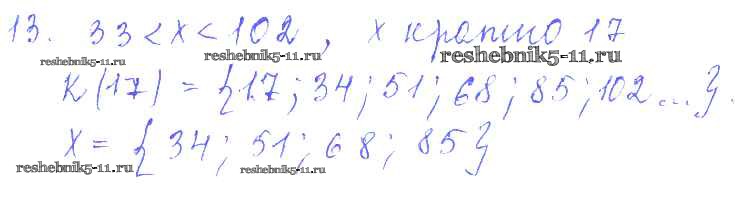 13. 33 < x < 102, x кратно 17
reshebnik5-11.ru reshebnik5-11.ru
reshebnik5-11.ru
K(17) = {17; 34; 51; 68; 85; 102...}.
X = {34; 51; 68; 85}
reshebnik5-11.ru reshebnik5-11.ru